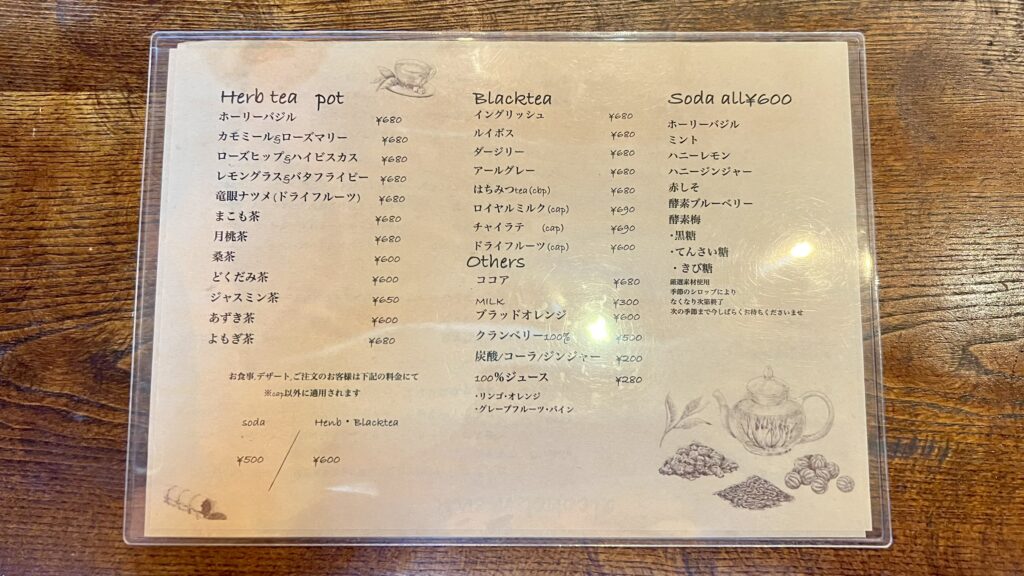 Herb tea pot
ホーリーバジル ¥680
カモミール&ローズマリー ¥680
ローズヒップ&ハイビスカス ¥680
レモングラス&バタフライピー ¥680
竜眼ナツメ(ドライフルーツ) ¥680
まこも茶 ¥680
月桃茶 ¥680
桑茶 ¥600
どくだみ茶 ¥600
ジャスミン茶 ¥650
あずき茶 ¥600
よもぎ茶 ¥680
お食事,デザート,ご注文のお客様は下記の料金にて
※cap以外に適用されます
soda / Henb・Blacktea
¥500 / ¥600
Blacktea
イングリッシュ ¥680
ルイボス ¥680
ダージリー ¥680
アールグレー ¥680
はちみつtea(cbp) ¥680
ロイヤルミルク(cap) ¥690
チャイラテ (cap) ¥690
ドライフルーツ(cap) ¥600
Others
ココア ¥680
MILK ¥300
ブラッドオレンジ ¥600
クランベリー100% ¥500
炭酸/コーラ/ジンジャー ¥200
100%ジュース ¥280
・リンゴ・オレンジ
・グレープフルーツ・パイン
Soda all¥600
ホーリーバジル
ミント
ハニーレモン
ハニージンジャー
赤しそ
酵素ブルーベリー
酵素梅
・黒糖
・てんさい糖
・きび糖
厳選素材使用
季節のシロップにより
なくなり次第終了
次の季節まで今しばらくお待ちくださいませ